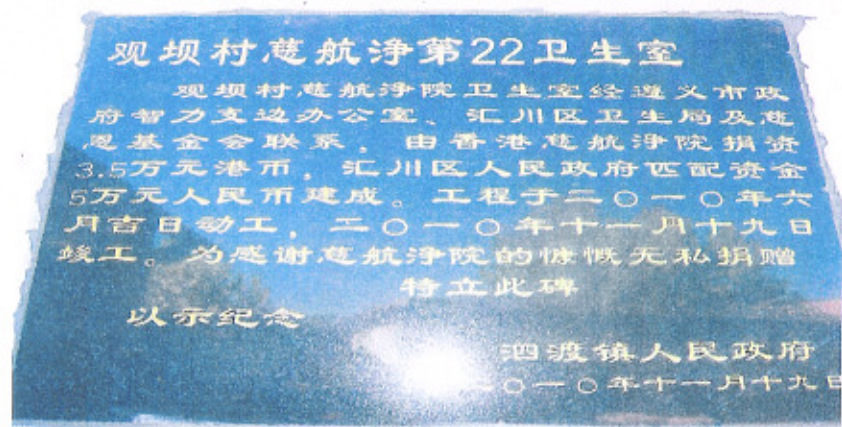 观坝村慈航净第22卫生室
观坝村慈航净院卫生室经遵义市政
府智力支边办公室、汇川区卫生局及慈
恩基金会联系，由香港慈航净院捐资
3.5万元港币，汇川区人民政府匹配资金
5万元人民币建成。工程于二〇一〇年六
月吉日动工，二〇一〇年十一月十九日
竣工。为感谢慈航净院的慷慨无私捐赠
特立此碑
以示纪念
泗渡镇人民政府
二〇一〇年十一月十九日